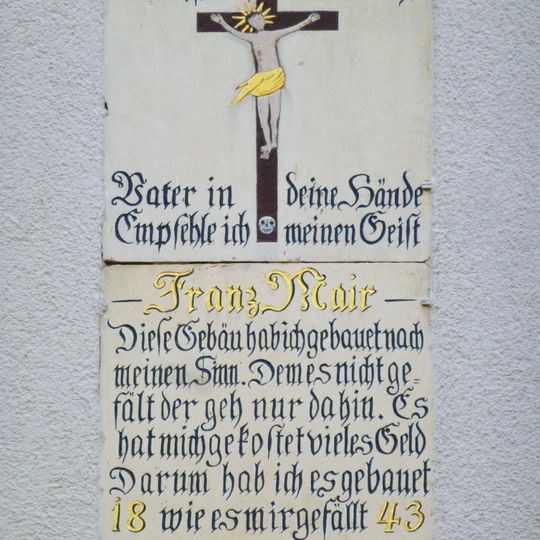 Vater in deine Hände
Empfehle ich meinen Geist
– Franz Mair –
Diese Gebäu hab ich gebauet nach
meinen Sinn. Dem es nicht ge-
fält der geh nur dahin. Es
hat mich gekostet vieles Geld
Darum hab ich es gebauet
18 wie es mir gefällt 43